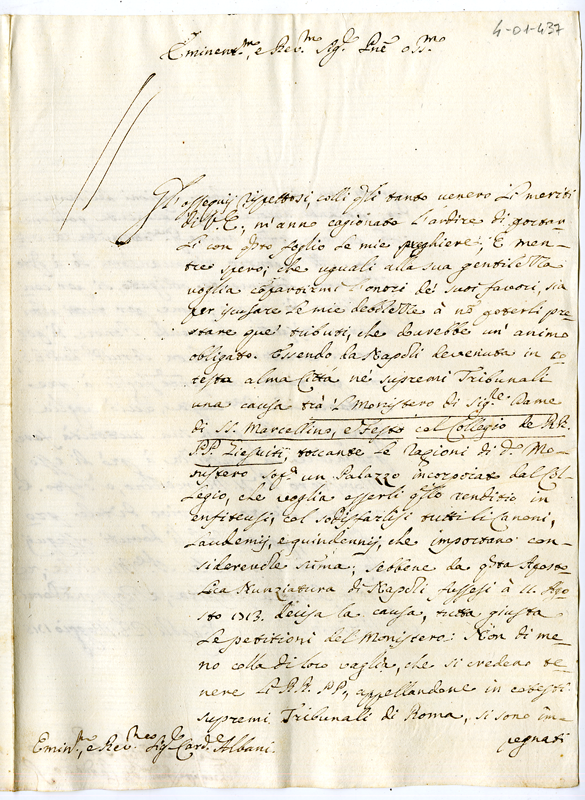 4-01-437
Eminen.mo, e Rev.mo Sig.r Pne oss.mo
Gl'ossequij rispettosi, colli q'li tanto venero li meriti
di V. E., m'anno cagionato l'ardire di portar-
li con q'sto foglio le mie preghiere; E men-
tre spero, che uguali alla sua gentilezza
voglia compartirmi l'onori de' suoi favori, sia
per iscusare le mie debolezze à nõ poterli pre-
stare que' tributi, che dovrebbe un' animo
obligato. Essendo da Napoli devenuta in co-
testa alma Città ne' supremi Tribunali
una causa trà l Monistero di Sig.re Dame
di SS. Marcellino, e Festo col Collegio de RR.
PP. Giesuiti, toccante le ragioni di d.o Mo-
nistero sop.a un Palazzo incorporato dal Col-
legio, che voglia esserli q'llo renditio in
enfiteusi, col sodisfarlisi tutti li Canoni,
Laudemij, e quindennij, che importano con-
siderevole suma; sebbene da q'sta
la Nunziatura di Napoli fussesi à 11. Ago-
sto 1713. decisa la causa, tutta giusta
le petitioni del Monistero: Non di me-
no colla di loro vaglia, che si credeno te-
nere li RR. PP., appellandone in cotesti
supremi Tribunali di Roma, si sono im-
pegnati
Emin.mo, e Rev.mo Sig.r Card.le Albani.